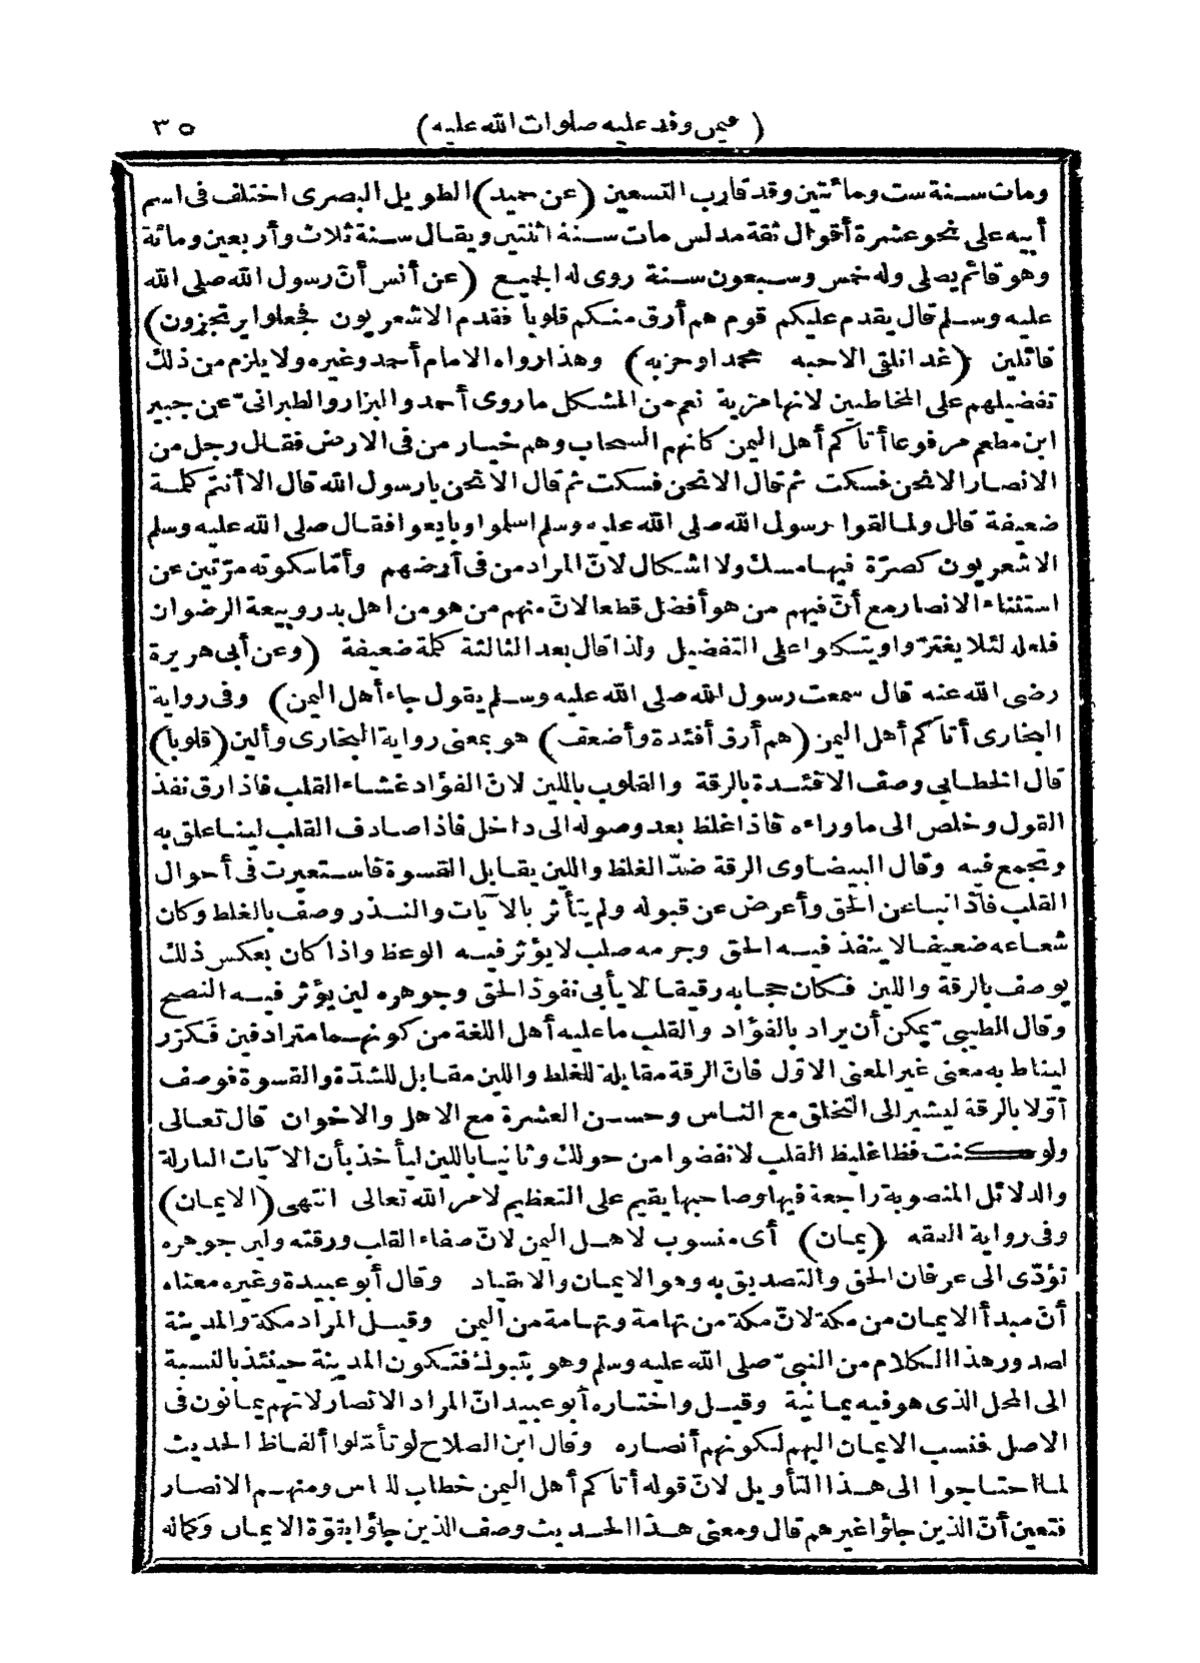 (فيمن وفد عليه صلوات الله عليه) ٣٥
ومات سنة ست ومائتين وقد قارب التسعين (عن حميد) الطويل البصرى اختلف فى اسم
أبيه على نحو عشرة أقوال ثقة مدلس مات سنة اثنتين ويقال سنة ثلاث وأربعين ومائة
وهو قائم يصلى وله خمس وسبعون سنة روى له الجميع (عن أنس أنّ رسول الله صلى الله
عليه وسلم قال يقدم عليكم قوم هم أرق منكم قلوبا فقدم الاشعريون فجعلوا يرتجزون)
قائلين (غدا نلقى الاحبه محمدا وحزبه) وهذا رواه الامام أحمد وغيره ولا يلزم من ذلك
تفضيلهم على المخاطبين لانها مزية نعم من المشكل ما روى أحمد والبزار والطبرانىّ عن جبير
ابن مطعم مرفوعا أتاكم أهل اليمن كانهم السحاب وهم خيار من فى الارض فقال رجل من
الانصار الا نحن فسكت ثم قال الا نحن فسكت ثم قال الا نحن يا رسول الله قال الا أنتم كلمة
ضعيفة قال ولما لقوا رسول الله صلى الله عليه وسلم اسلموا وبايعوا فقال صلى الله عليه وسلم
الاشعريون كصرّة فيها مسك ولا اشكال لانّ المراد من فى أرضهم وأمّا سكوته مرّتين عن
استثناء الانصار مع أنّ فيهم من هو أفضل قطعا لانّ منهم من هو من اهل بدر وبيعة الرضوان
فلعله لئلا يغترّوا ويتكلوا على التفضيل ولذا قال بعد الثالثة كلمة ضعيفة (وعن أبى هريرة
رضى الله عنه قال سمعت رسول الله صلى الله عليه وسلم يقول جاء أهل اليمن) وفى رواية
البخارى أتاكم أهل اليمن (هم أرق أفئدة وأضعف) هو بمعنى رواية البخارى وألين (قلوبا)
قال الخطابى وصف الافئدة بالرقة والقلوب باللين لانّ الفؤاد غشاء القلب فاذا رق نفذ
القول وخلص الى ما وراءه فاذا غلظ بعد وصوله الى داخل فاذا صادف القلب لينا علق به
وتجمع فيه وقال البيضاوى الرقة ضدّ الغلظ واللين يقابل القسوة فاستعيرت فى أحوال
القلب فاذا نبا عن الحق وأعرض عن قبوله ولم يتأثر بالآيات والنذر وصف بالغلط وكان
شعاعه ضعيفا لا ينفذ فيه الحق وجرمه صلب لا يؤثر فيه الوعظ واذا كان بعكس ذلك
يوصف بالرقة واللين فكان حجابه رقيقا لا يأبى نفوذ الحق وجوهره لين يؤثر فيه النصح
وقال الطيبىّ يمكن أن يراد بالفؤاد والقلب ما عليه أهل اللغة من كونهما مترادفين فكرّر
ليناط به معنى غير المعنى الاوّل فانّ الرقة مقابلة للغلط واللين مقابل للشدّة والقسوة فوصف
أوّلا بالرقة ليشير الى التخلق مع الناس وحسن العشرة مع الاهل والاخوان قال تعالى
ولو كنت فظا غليظ القلب لانفضوا من حولك وثانيا باللين ليأخذ بأن الآيات النازلة
والدلائل المنصوبة راجعة فيها وصاحبها يقيم على التعظيم لامر الله تعالى انتهى (الايمان)
وفى رواية الفقه (يمان) أى منسوب لاهل اليمن لانّ صفاء القلب ورقته ولين جوهره
تؤدّى الى عرفان الحق والتصديق به وهو الايمان والانقياد وقال أبو عبيدة وغيره معناه
أنّ مبدأ الايمان من مكة لانّ مكة من تهامة وتهامة من اليمن وقيل المراد مكة والمدينة
لصدور هذا الكلام من النبىّ صلى الله عليه وسلم وهو بتبوك فتكون المدينة حينئذ بالنسبة
الى المحل الذى هو فيه يمانية وقيل واختاره أبو عبيد انّ المراد الانصار لانهم يمانون فى
الاصل فنسب الايمان اليهم لكونهم أنصاره وقال ابن الصلاح لو تأمّلوا ألفاظ الحديث
لما احتاجوا الى هذا التأويل لانّ قوله أتاكم أهل اليمن خطاب للناس ومنهم الانصار
فتعين أنّ الذين جاؤا غيرهم قال ومعنى هذا الحديث وصف الذين جاؤا بقوّة الايمان وكماله